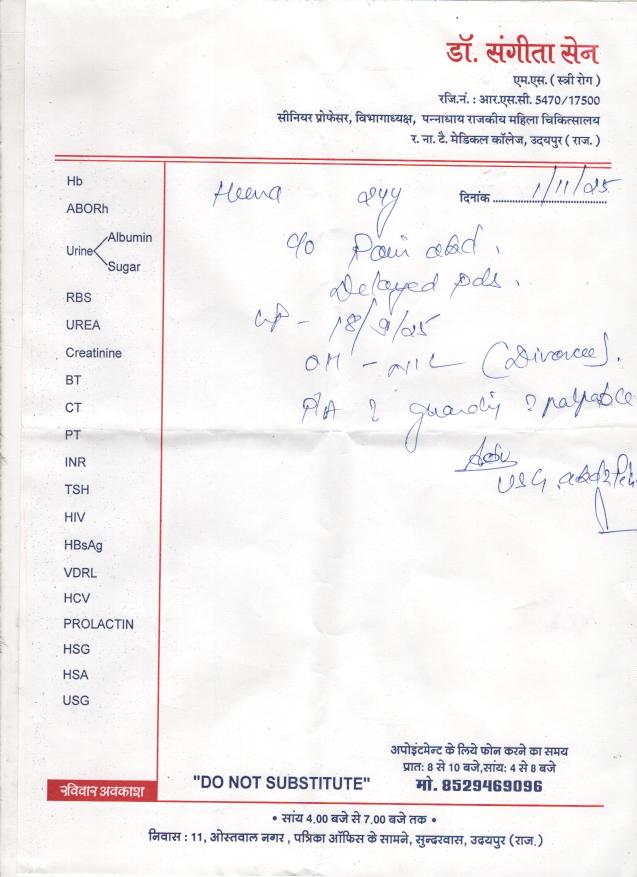 डॉ. संगीता सेन
एम.एस. ( स्त्री रोग )
रजि.नं. : आर.एस.सी. 5470/17500
सीनियर प्रोफेसर, विभागाध्यक्ष, पन्नाधाय राजकीय महिला चिकित्सालय
र. ना. टै. मेडिकल कॉलेज, उदयपुर ( राज. )
दिनांक 1/11/25
Heena 24y
c/o Pain abd.
Delayed pds.
LMP - 18/9/25
OH - NIL (Divorcee).
P/A ? guarding ? palpable
Adv
USG. abd
Hb
ABORh
Urine Albumin
Sugar
RBS
UREA
Creatinine
BT
CT
PT
INR
TSH
HIV
HBsAg
VDRL
HCV
PROLACTIN
HSG
HSA
USG
रविवार अवकाश
"DO NOT SUBSTITUTE"
अपोइंटमेन्ट के लिये फोन करने का समय
प्रातः 8 से 10 बजे,सांय: 4 से 8 बजे
मो. 8529469096
• सांय 4.00 बजे से 7.00 बजे तक •
निवास : 11, ओस्तवाल नगर , पत्रिका ऑफिस के सामने, सुन्दरवास, उदयपुर (राज.)